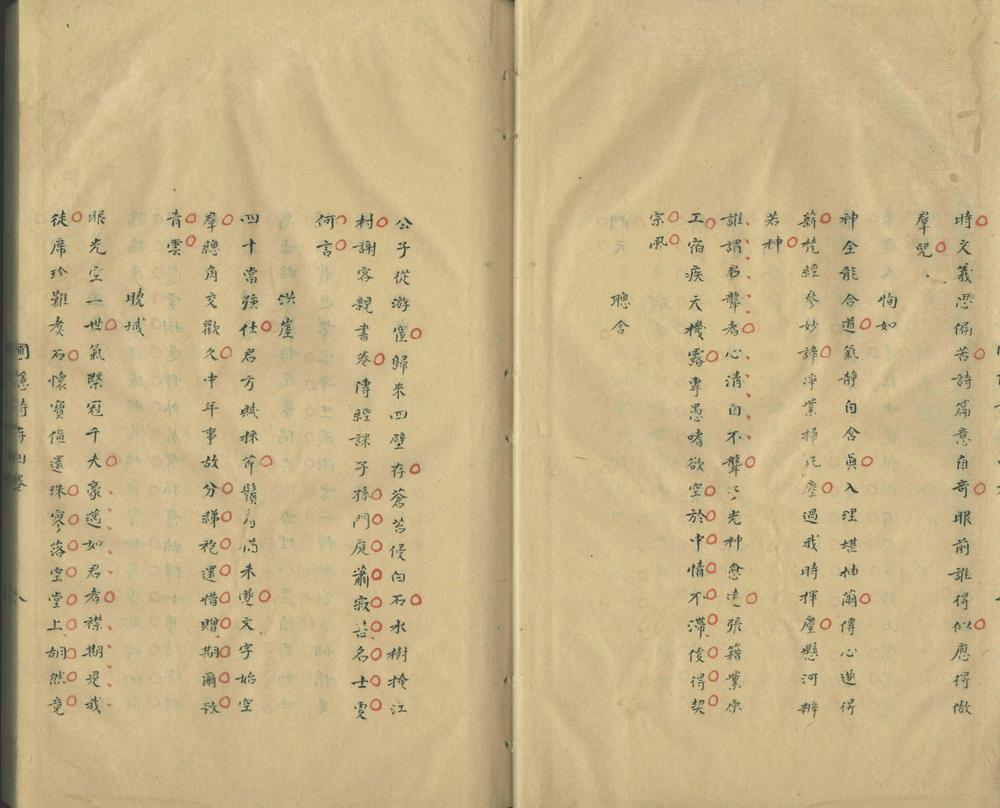 時文義思偏苦詩篇意自奇眼前誰得似應得倣
羣兒
恂如
神全能合道氣靜自含眞入理堪抽繭傳心遂得
薪梵經參妙諦淨業掃凡塵過我時揮麈懸河辨
若神
聽舍
誰謂君聾者心清自不聾三光神愈遠張籍業原
工宿疾天機露專愚嗜欲空於中情不滯後得契
宗風
公子從游宦歸來四壁存蒼苔侵白石水樹掩江
村謝客親書卷傳經課子孫門庭蕭寂甚名士更
何言
洪崖
四十當強仕君方賦採芹鬚眉尚未遂文字始空
羣總角交歡久中年事故分綈袍還惜贈期爾致
青雲
晚城
眼光空一世氣槩冠千夫豪邁如君者襟期是我
徒席珍難煑石懷寶値還珠寥落空堂上胡然竟